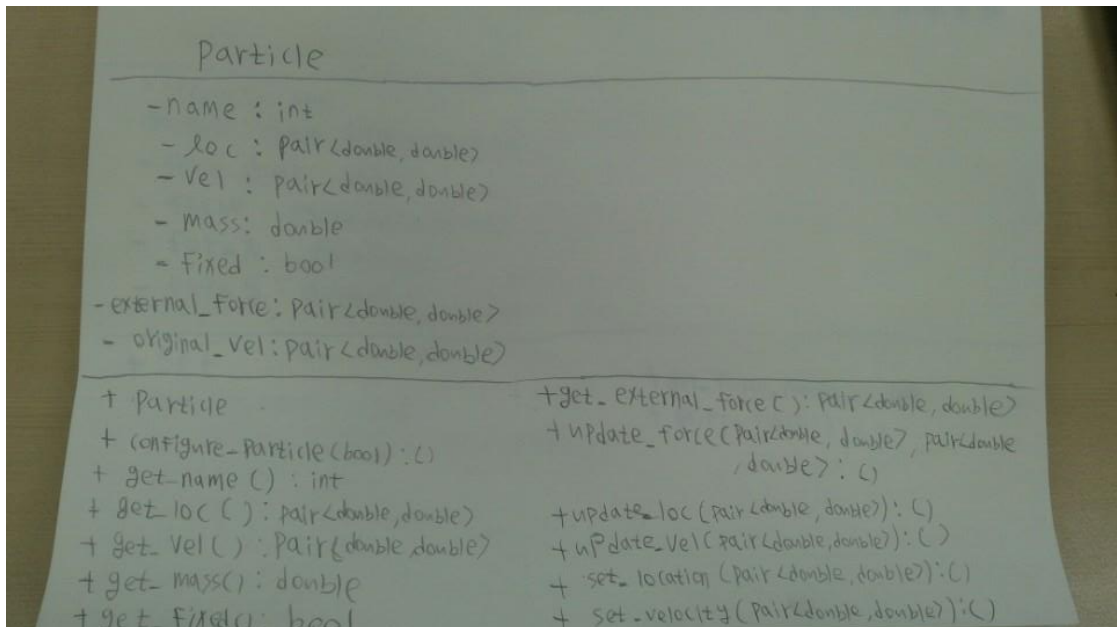 Particle
- name : int
- loc : pair<double, double>
- vel : pair<double, double>
- mass: double
- fixed : bool
- external_force: pair<double, double>
- original_vel: pair<double, double>
+ Particle
+ configure_particle(bool) : ()
+ get_name () : int
+ get_loc () : pair<double, double>
+ get_vel () : pair<double, double>
+ get_mass() : double
+ get_fixed() : bool
+ get_external_force() : pair<double, double>
+ update_force(pair<double, double>, pair<double
, double> : ()
+ update_loc (pair<double, double>) : ()
+ update_vel (pair<double, double>) : ()
+ set_location (pair<double, double>) : ()
+ set_velocity (pair<double, double>) : ()